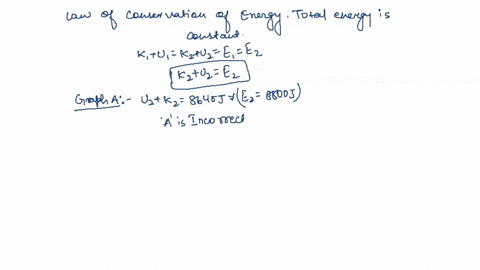 Law of Conservation of Energy. Total energy is
constant.
K₁+U₁=K₂+U₂=E₁=E₂
K₂+U₂=E₂
Graph A:- U₂+K₂=8640J≠(E₂=8800J)
'A' is Incorrect